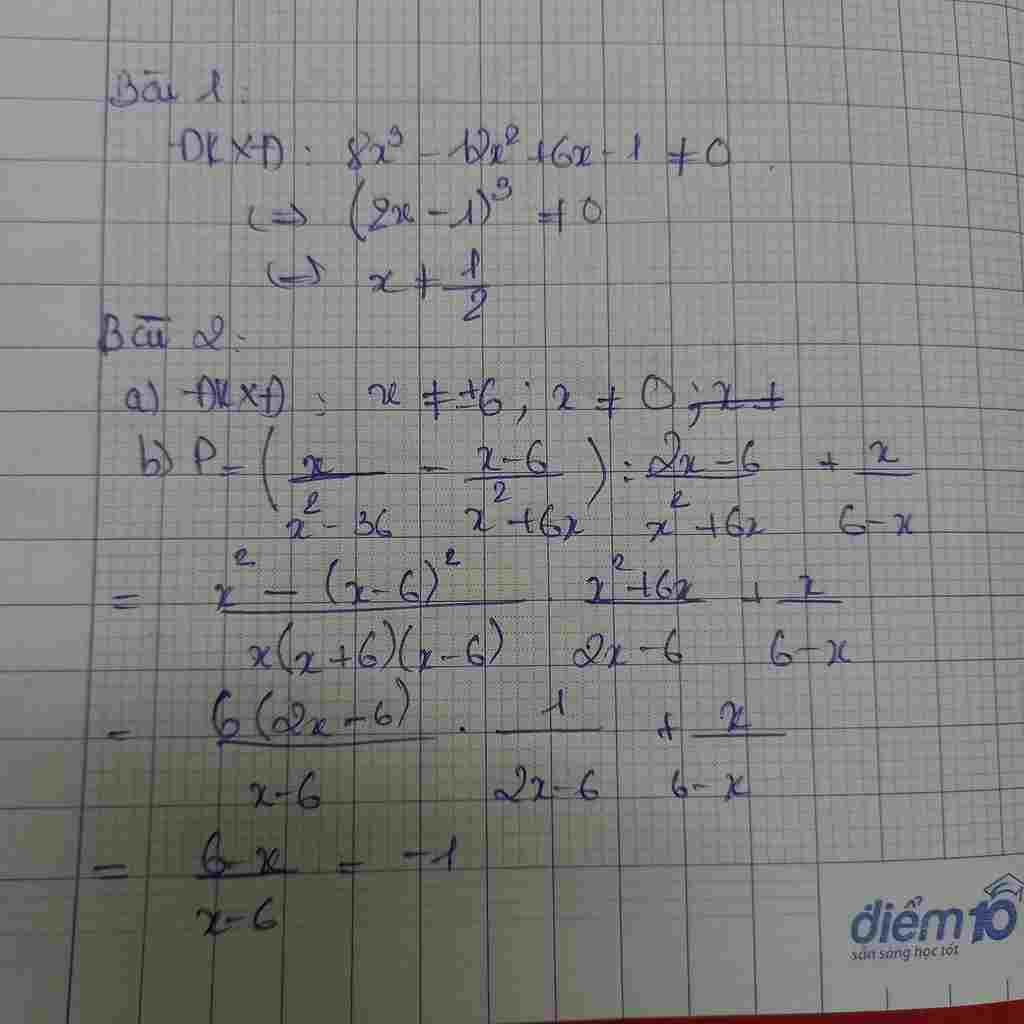 Bài 1:
ĐKXĐ: 8x³ - 12x² + 6x - 1 ≠ 0
<=> (2x - 1)³ ≠ 0
<=> x ≠ 1/2
Bài 2:
a) ĐKXĐ: x ≠ ±6; x ≠ 0; x ≠
b) P = (x/(x² - 36) - (x-6)/(x² + 6x)) : (2x-6)/(x² + 6x) + x/(6-x)
= (x² - (x-6)²)/(x(x+6)(x-6)) . (x²+6x)/(2x-6) + x/(6-x)
= 6(2x-6)/(x-6) . 1/(2x-6) + x/(6-x)
= (6-x)/(x-6) = -1
điểm10
sẵn sàng học tốt